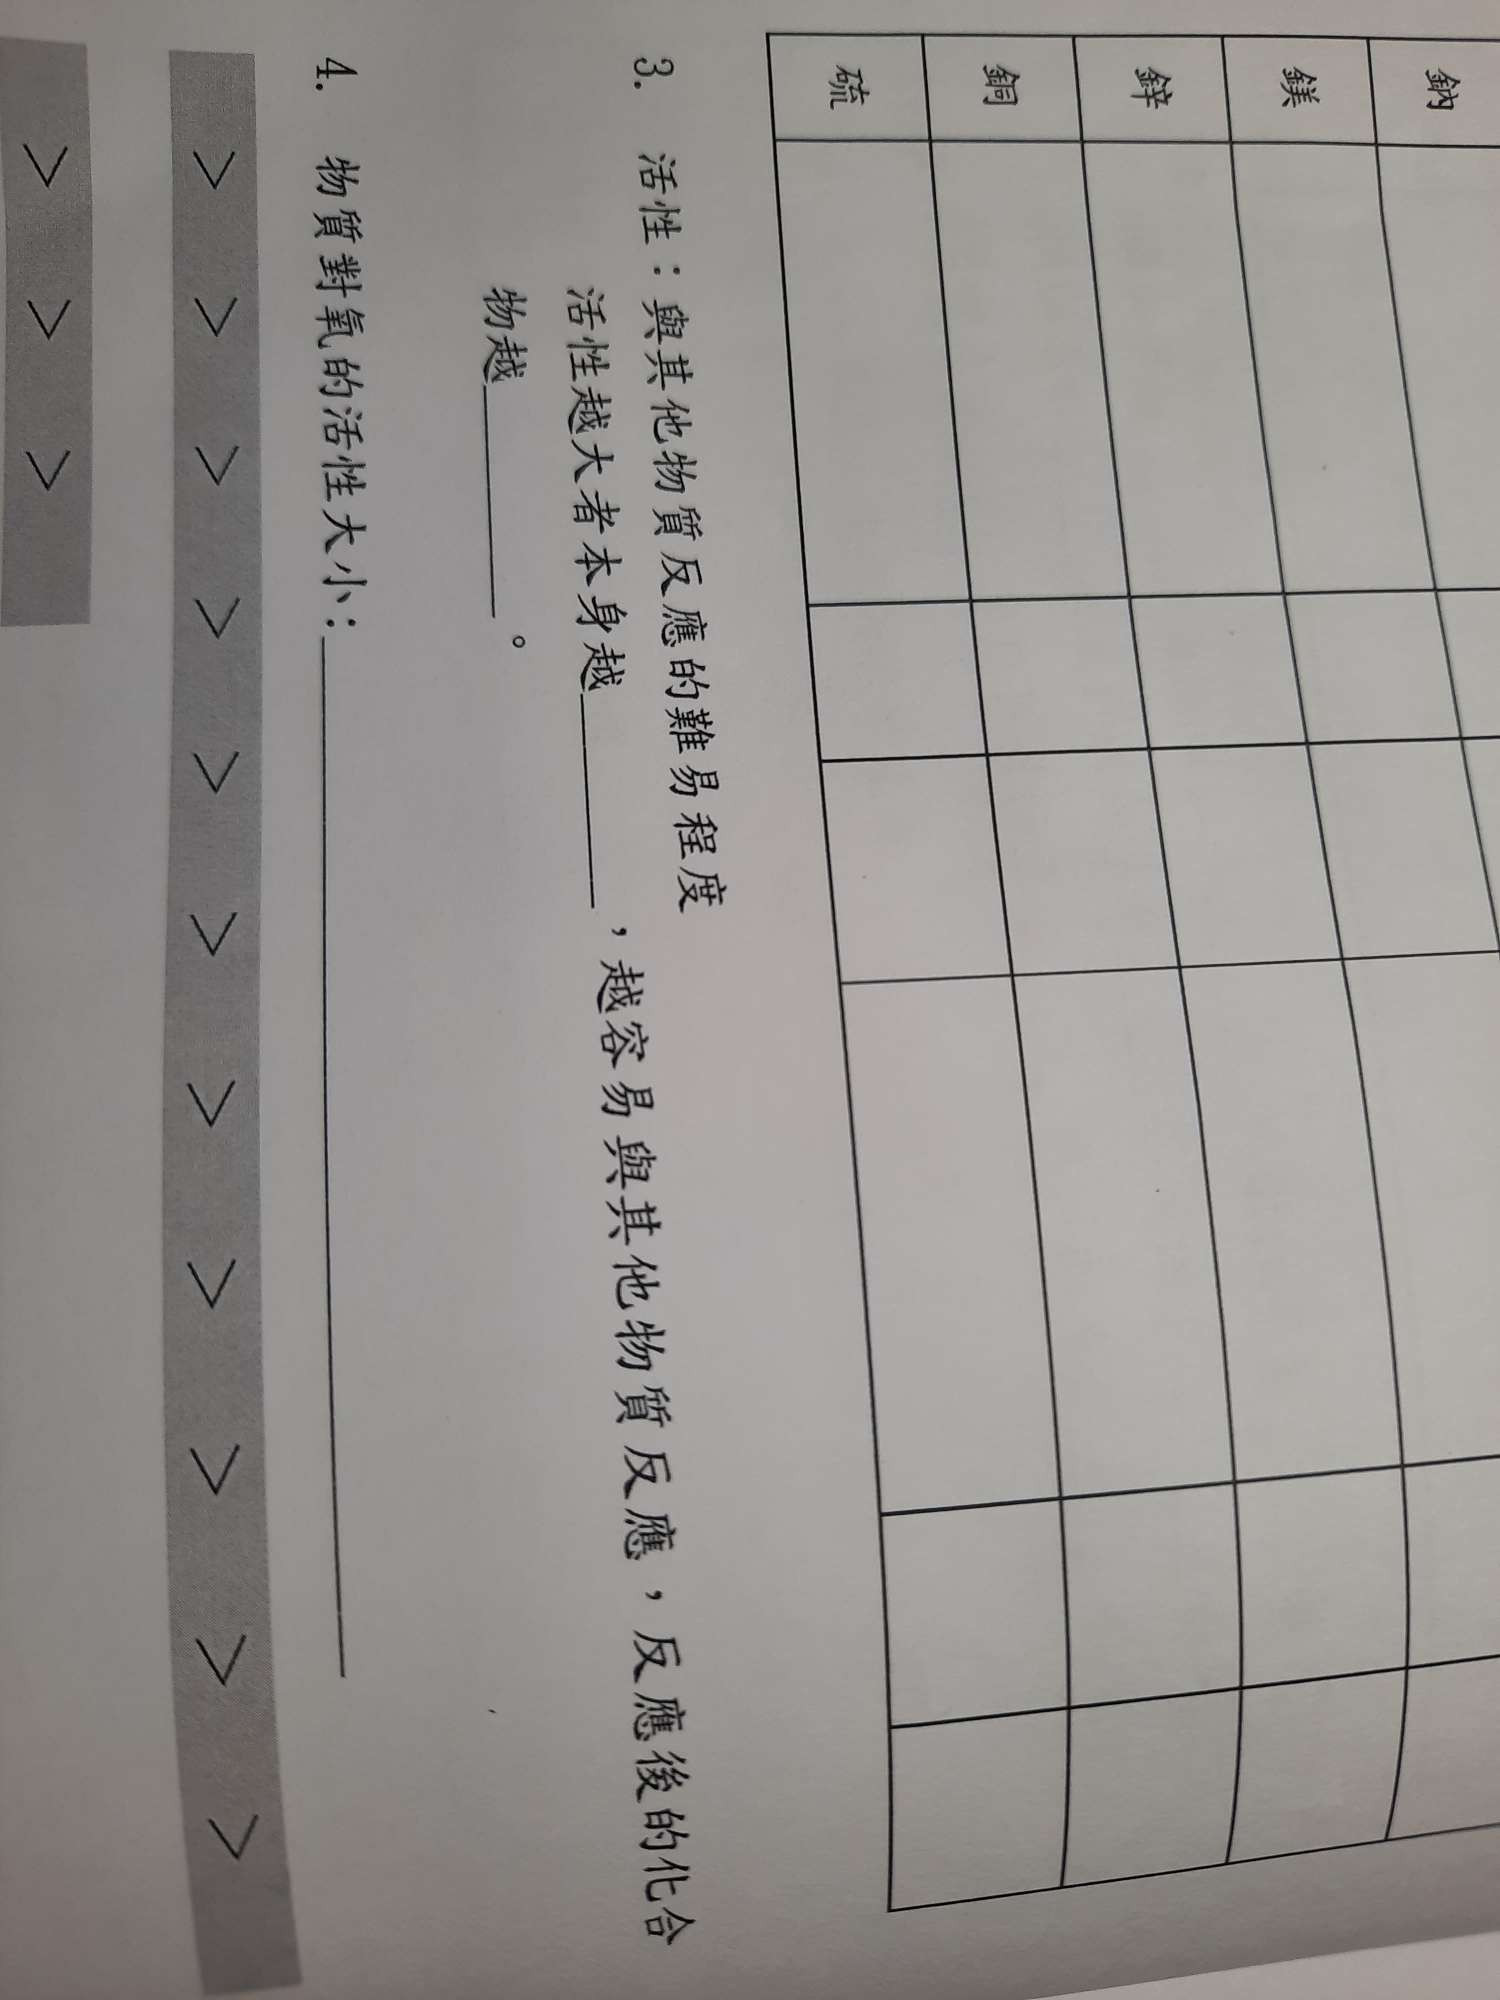 鈉
鎂
鋅
銅
硫
3. 活性：與其他物質反應的難易程度
活性越大者本身越________，越容易與其他物質反應，反應後的化合
物越________。
4. 物質對氧的活性大小：________________________________
> > > > > > > > > > >
> > >